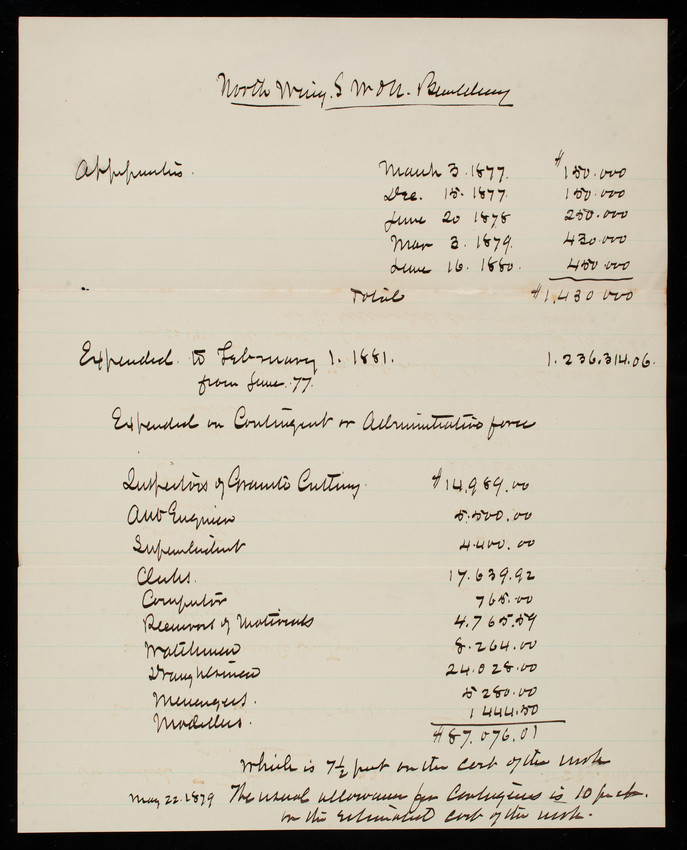 North Wing. S W & N. Building
Appropriatio. March 3. 1877. $150.000
Dec. 15. 1877. 150.000
June 20 1878 250.000
Mar 3. 1879. 430.000
June 16. 1880. 450.000
Total $1,430 000
Expended to February 1. 1881. 1.236.314.06.
from June 77.
Expended on Contingent or Administrative force
Inspectors of Granite Cutting. $14,989.00
Asst Engineer 5.500.00
Superintendent 4.400.00
Clerks. 17.639.92
Computor 765.00
Receivers of Materials 4.765.59
Watchmen 8.264.00
Draughtsmen 24.028.00
Messengers. 5 280.00
Modellers. 1 444.50
$87,076.01
Which is 7½ pr ct on the cost of the work
May 22. 1879 The usual allowance for Contingencies is 10 pr ct.
on the estimated cost of the work.